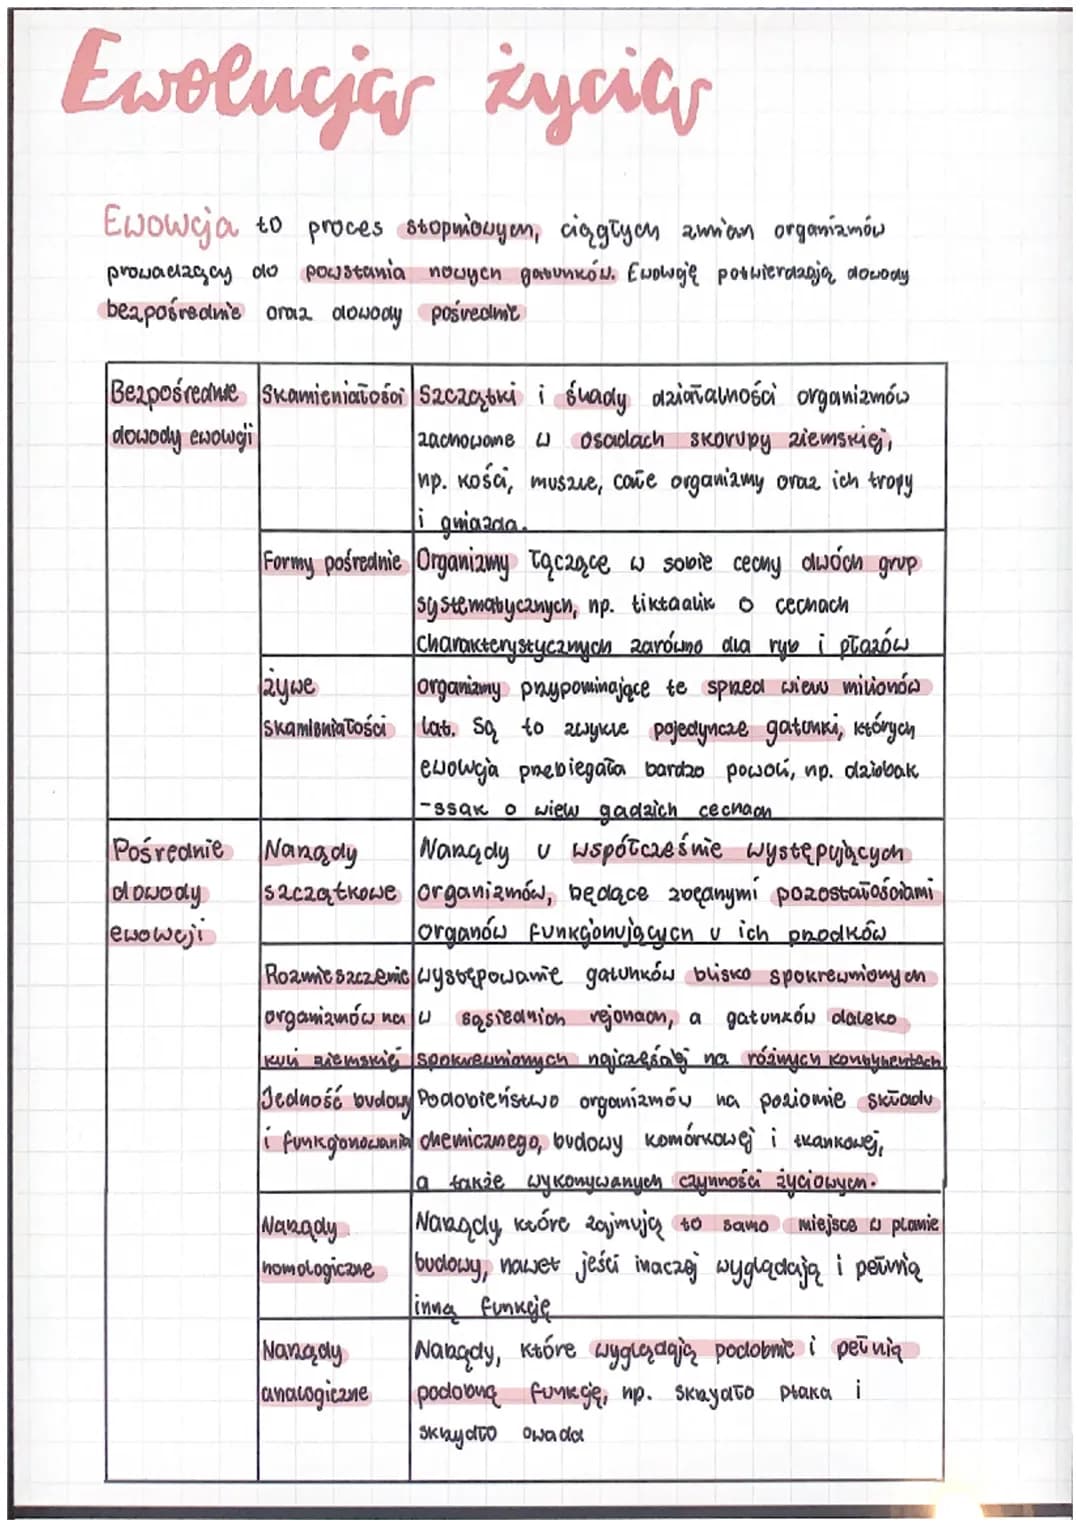 Ewolucja życia
Ewolucja to proces stopniowych, ciągłych zmian organizmów
prowadzący do powstania nowych gatunków. Ewolucję potwierdzają dowody
bezpośrednie oraz dowody pośrednie
Bezpośrednie
dowody ewolucji
Skamieniałości
Szczątki i ślady działalności organizmów
zachowane w osadach skorupy ziemskiej,
np. kości, muszle, całe organizmy oraz ich tropy
i gniazda.
Formy pośrednie
Organizmy łączące w sobie cechy dwóch grup
systematycznych, np. tiktaalik o cechach
charakterystycznych zarówno dla ryb i płazów
żywe
skamieniałości
organizmy przypominające te sprzed wielu milionów
lat. Są to zwykle pojedyncze gatunki, których
ewolucja przebiegała bardzo powoli, np. dziobak
-ssak o wielu gadzich cechach
Pośrednie
dowody
ewolucji
Narządy
szczątkowe
Narządy u współcześnie występujących
organizmów, będące zbędnymi pozostałościami
organów funkcjonujących u ich przodków
Rozmieszczenie
organizmów na
kuli ziemskiej
występowanie gatunków blisko spokrewnionych
w sąsiednich rejonach, a gatunków daleko
spokrewnionych najczęściej na różnych kontynentach
Jedność budowy
i funkcjonowania
Podobieństwo organizmów na poziomie składu
chemicznego, budowy komórkowej i tkankowej,
a także wykonywanych czynności życiowych.
Narządy
homologiczne
Narządy, które zajmują to samo miejsce w planie
budowy, nawet jeści inaczej wyglądają i pełnią
inną funkcję
Narządy
analogiczne
Narządy, które wyglądają podobnie i pełnią
podobną funkcję, np. skrzydło ptaka i
skrzydło owada